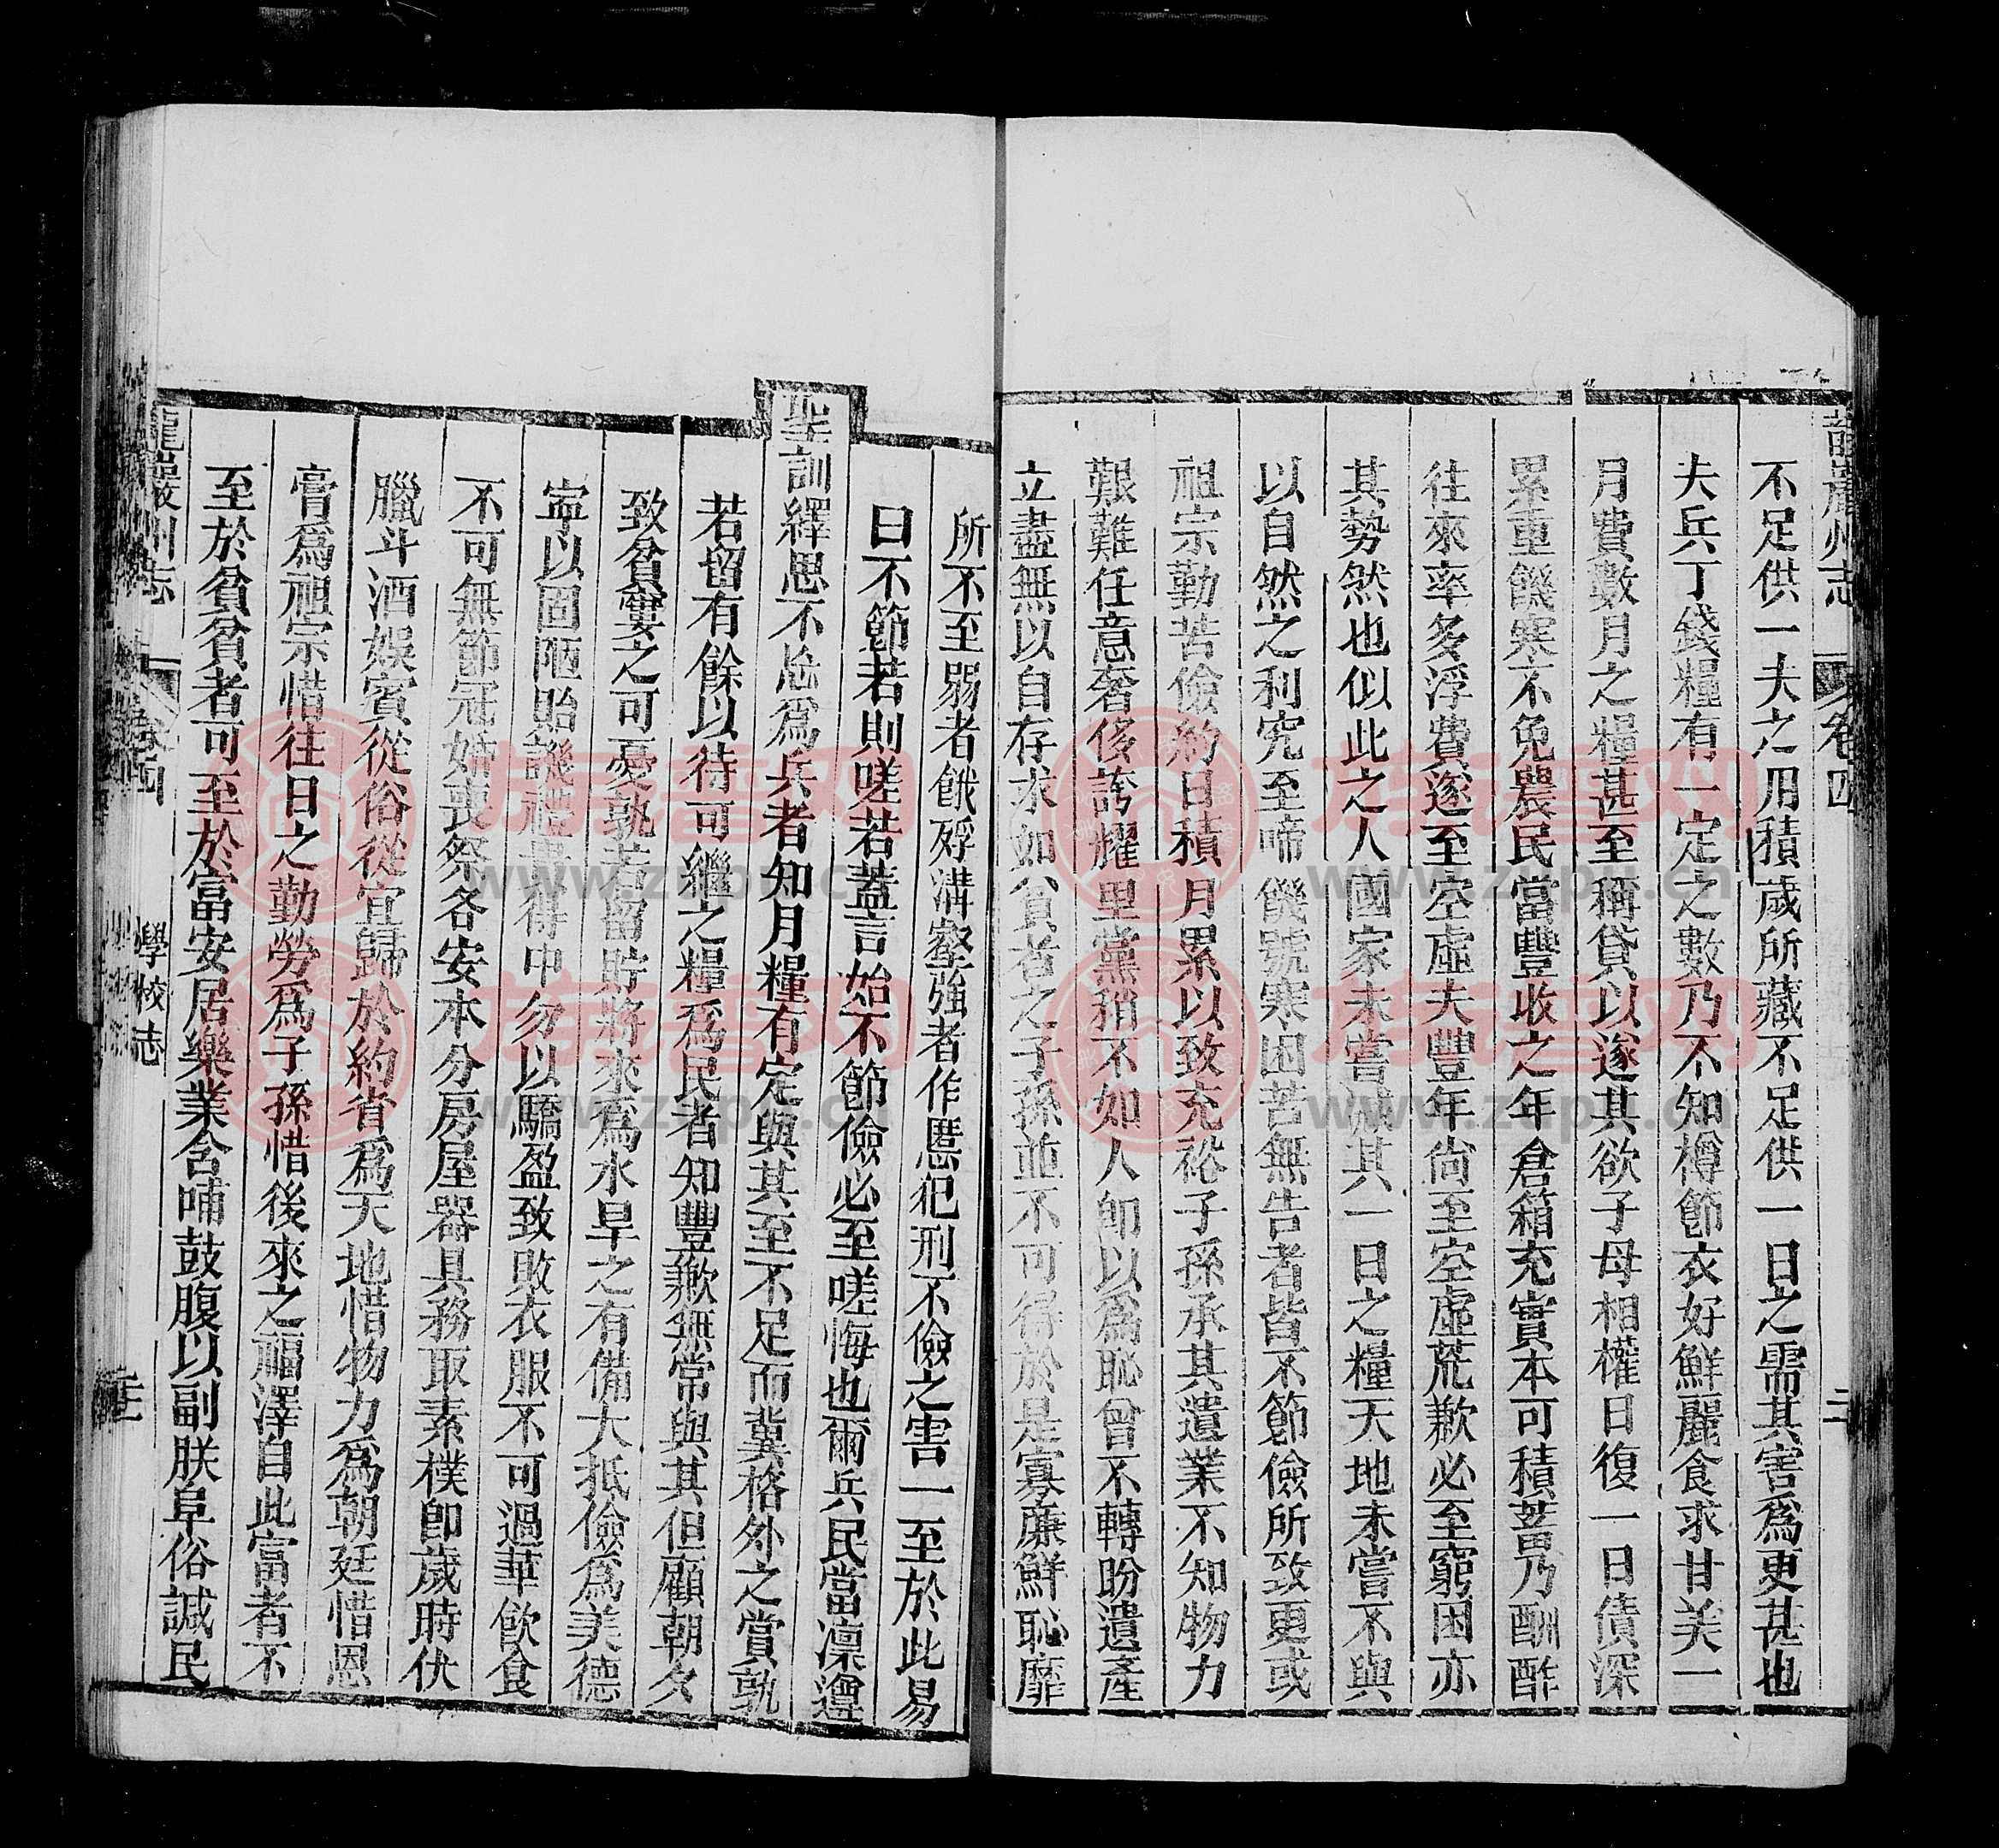 龍巖州志 卷四
不足供一夫之用積歲所藏不足供一日之需其害爲更甚也
夫兵丁錢糧有一定之數乃不知樽節衣好鮮麗食求甘美一
月費數月之糧甚至稱貸以遂其欲子母相權日復一日債深
累重饑寒不免農民當豐收之年倉箱充實本可積蓄乃酬酢
往來率多浮費遂至空虛夫豐年尚至空虛荒歉必至窮困亦
其勢然也似此之人國家未嘗減其一日之糧天地未嘗不與
以自然之利究至啼饑號寒困苦無告者皆不節儉所致更或
祖宗勤苦儉約日積月累以致充裕子孫承其遺業不知物力
艱難任意奢侈誇耀里黨稍不如人即以爲恥曾不轉盼遺產
立盡無以自存求如貧者之子孫並不可得於是寡廉鮮恥靡
所不至弱者餓殍溝壑強者作慝犯刑不儉之害一至於此易
曰不節若則嗟若蓋言始不節儉必至嗟悔也爾兵民當凜遵
聖訓繹思不忘爲兵者知月糧有定與其至不足而冀格外之賞孰
若留有餘以待可繼之糧爲民者知豐歉無常與其但顧朝夕
致貧窶之可憂孰若留貯將來爲水旱之有備大抵儉爲美德
寧以固陋貽譏禮貴得中勿以驕盈致敗衣服不可過華飲食
不可無節冠婚喪祭各安本分房屋器具務取素樸卽歲時伏
臘斗酒娛賓從俗從宜歸於約省爲天地惜物力爲朝廷惜恩
膏爲祖宗惜往日之勤勞爲子孫惜後來之福澤自此富者不
至於貧貧者可至於富安居樂業含哺鼓腹以副朕阜俗諴民
龍巖州志 卷四 學校志